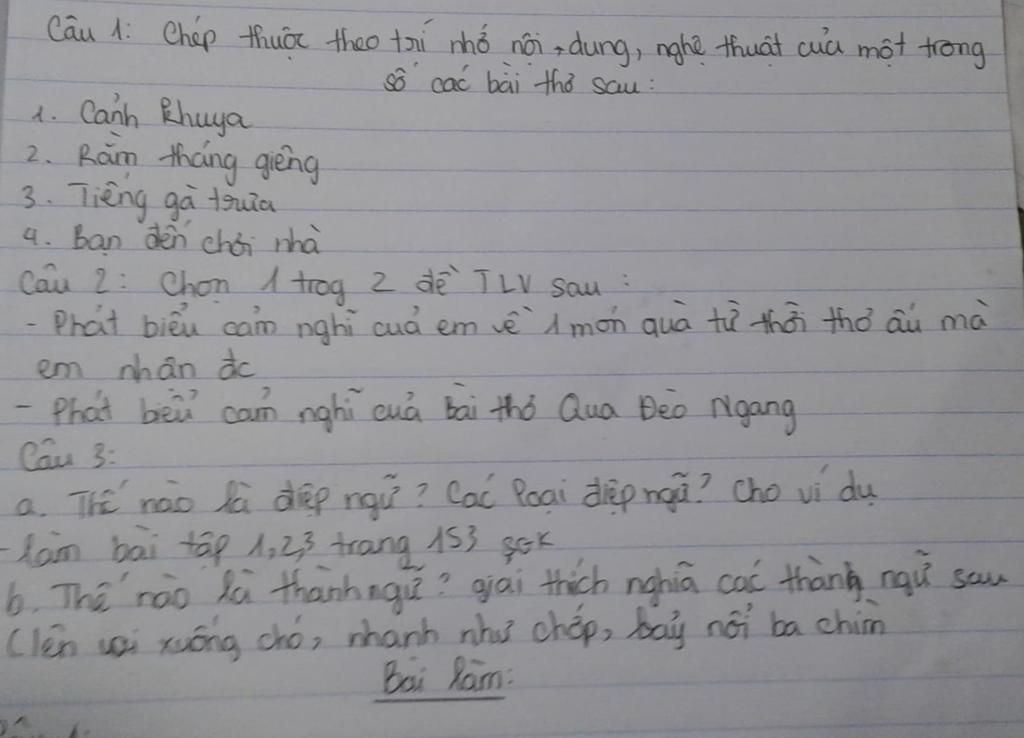 Câu 1: Chép thuộc theo trí nhớ nội, dung, nghệ thuật của một trong
số các bài thơ sau:
1. Cảnh khuya
2. Rằm tháng giêng
3. Tiếng gà trưa
4. Bạn đến chơi nhà
Câu 2: Chọn 1 trog 2 đề TLV sau:
- Phát biểu cảm nghĩ của em về 1 món quà từ thời thơ ấu mà
em nhân đc
- Phát biểu cảm nghĩ của bài thơ Qua Đèo Ngang
Câu 3:
a. Thế nào là điệp ngữ? Các loại điệp ngữ? Cho ví dụ
- làm bài tập 1,2,3 trang 153 SGK
b. Thế nào là thành ngữ? giải thích nghĩa các thành ngữ sau
(lên voi xuống chó, nhanh như chớp, bảy nổi ba chìm
Bài làm: